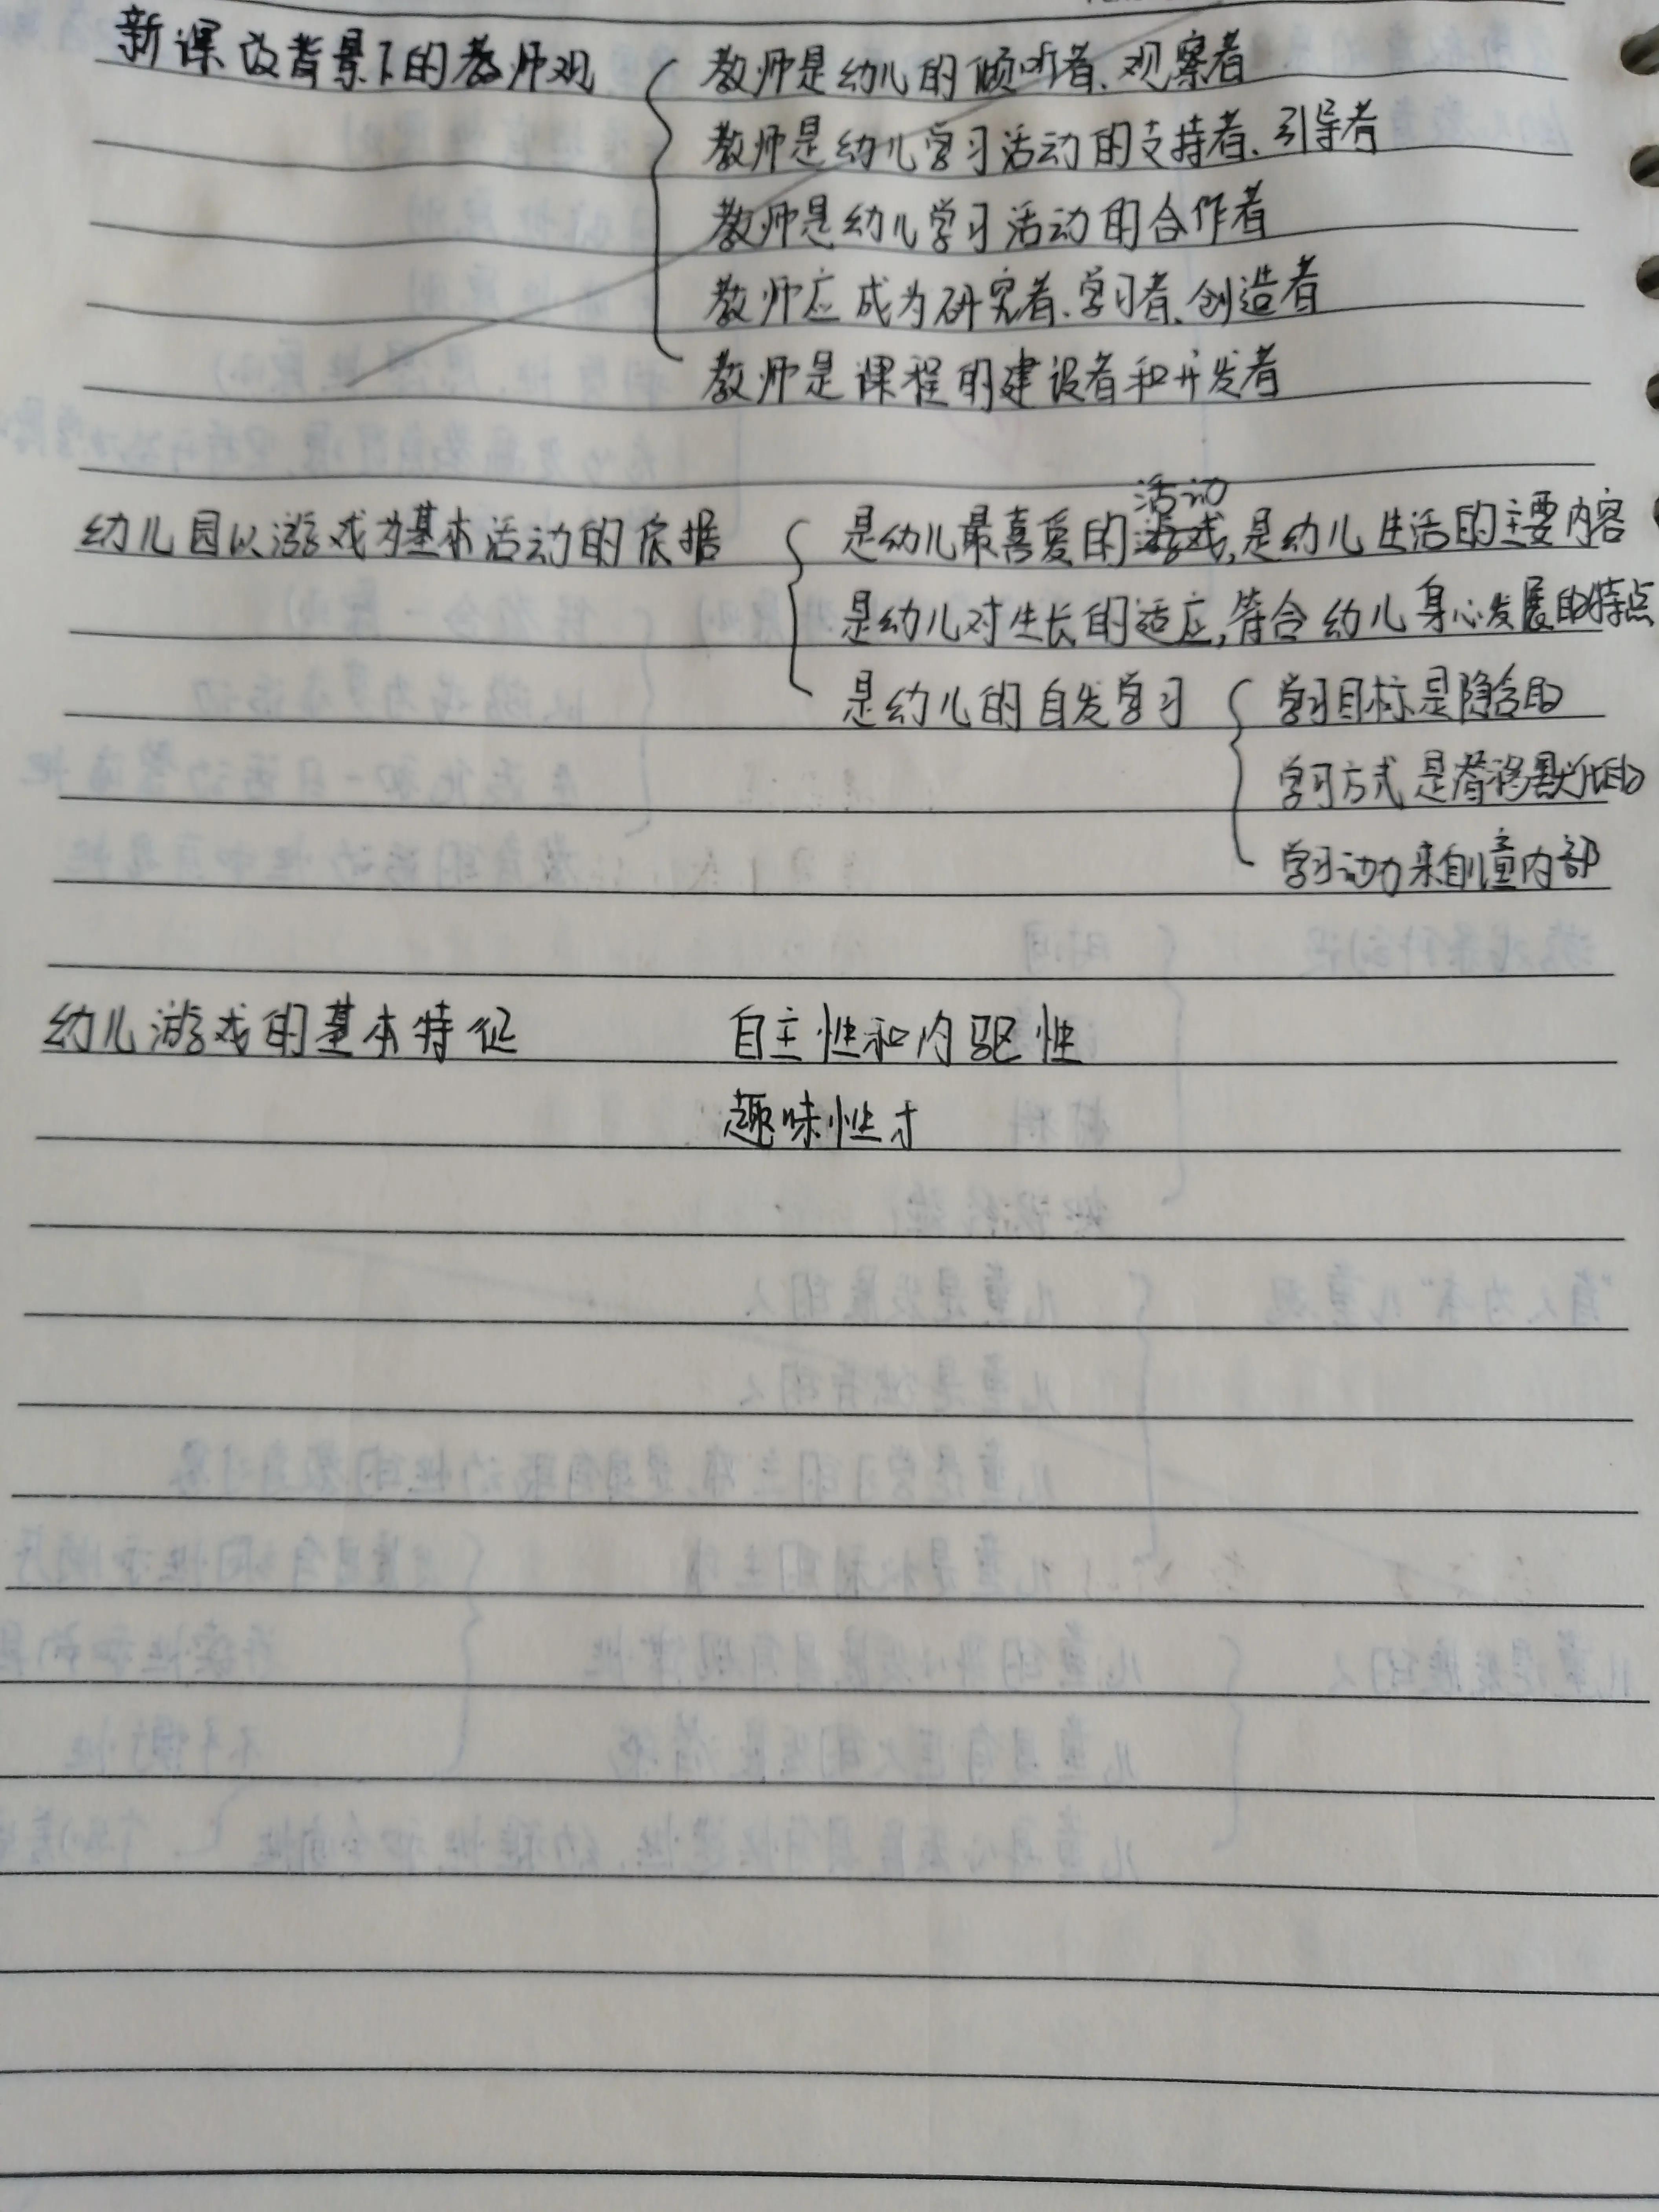 新课改背景下的教师观 教师是幼儿的倾听者、观察者
教师是幼儿学习活动的支持者、引导者
教师是幼儿学习活动的合作者
教师应成为研究者、学习者、创造者
教师是课程的建设者和开发者
活动
幼儿园以游戏为基本活动的依据 是幼儿最喜爱的游戏,是幼儿生活的主要内容
是幼儿对生长的适应,符合幼儿身心发展的特点
是幼儿的自发学习 学习目标是隐含的
学习方式是潜移默化的
学习动力来自儿童内部
幼儿游戏的基本特征 自主性和内驱性
趣味性